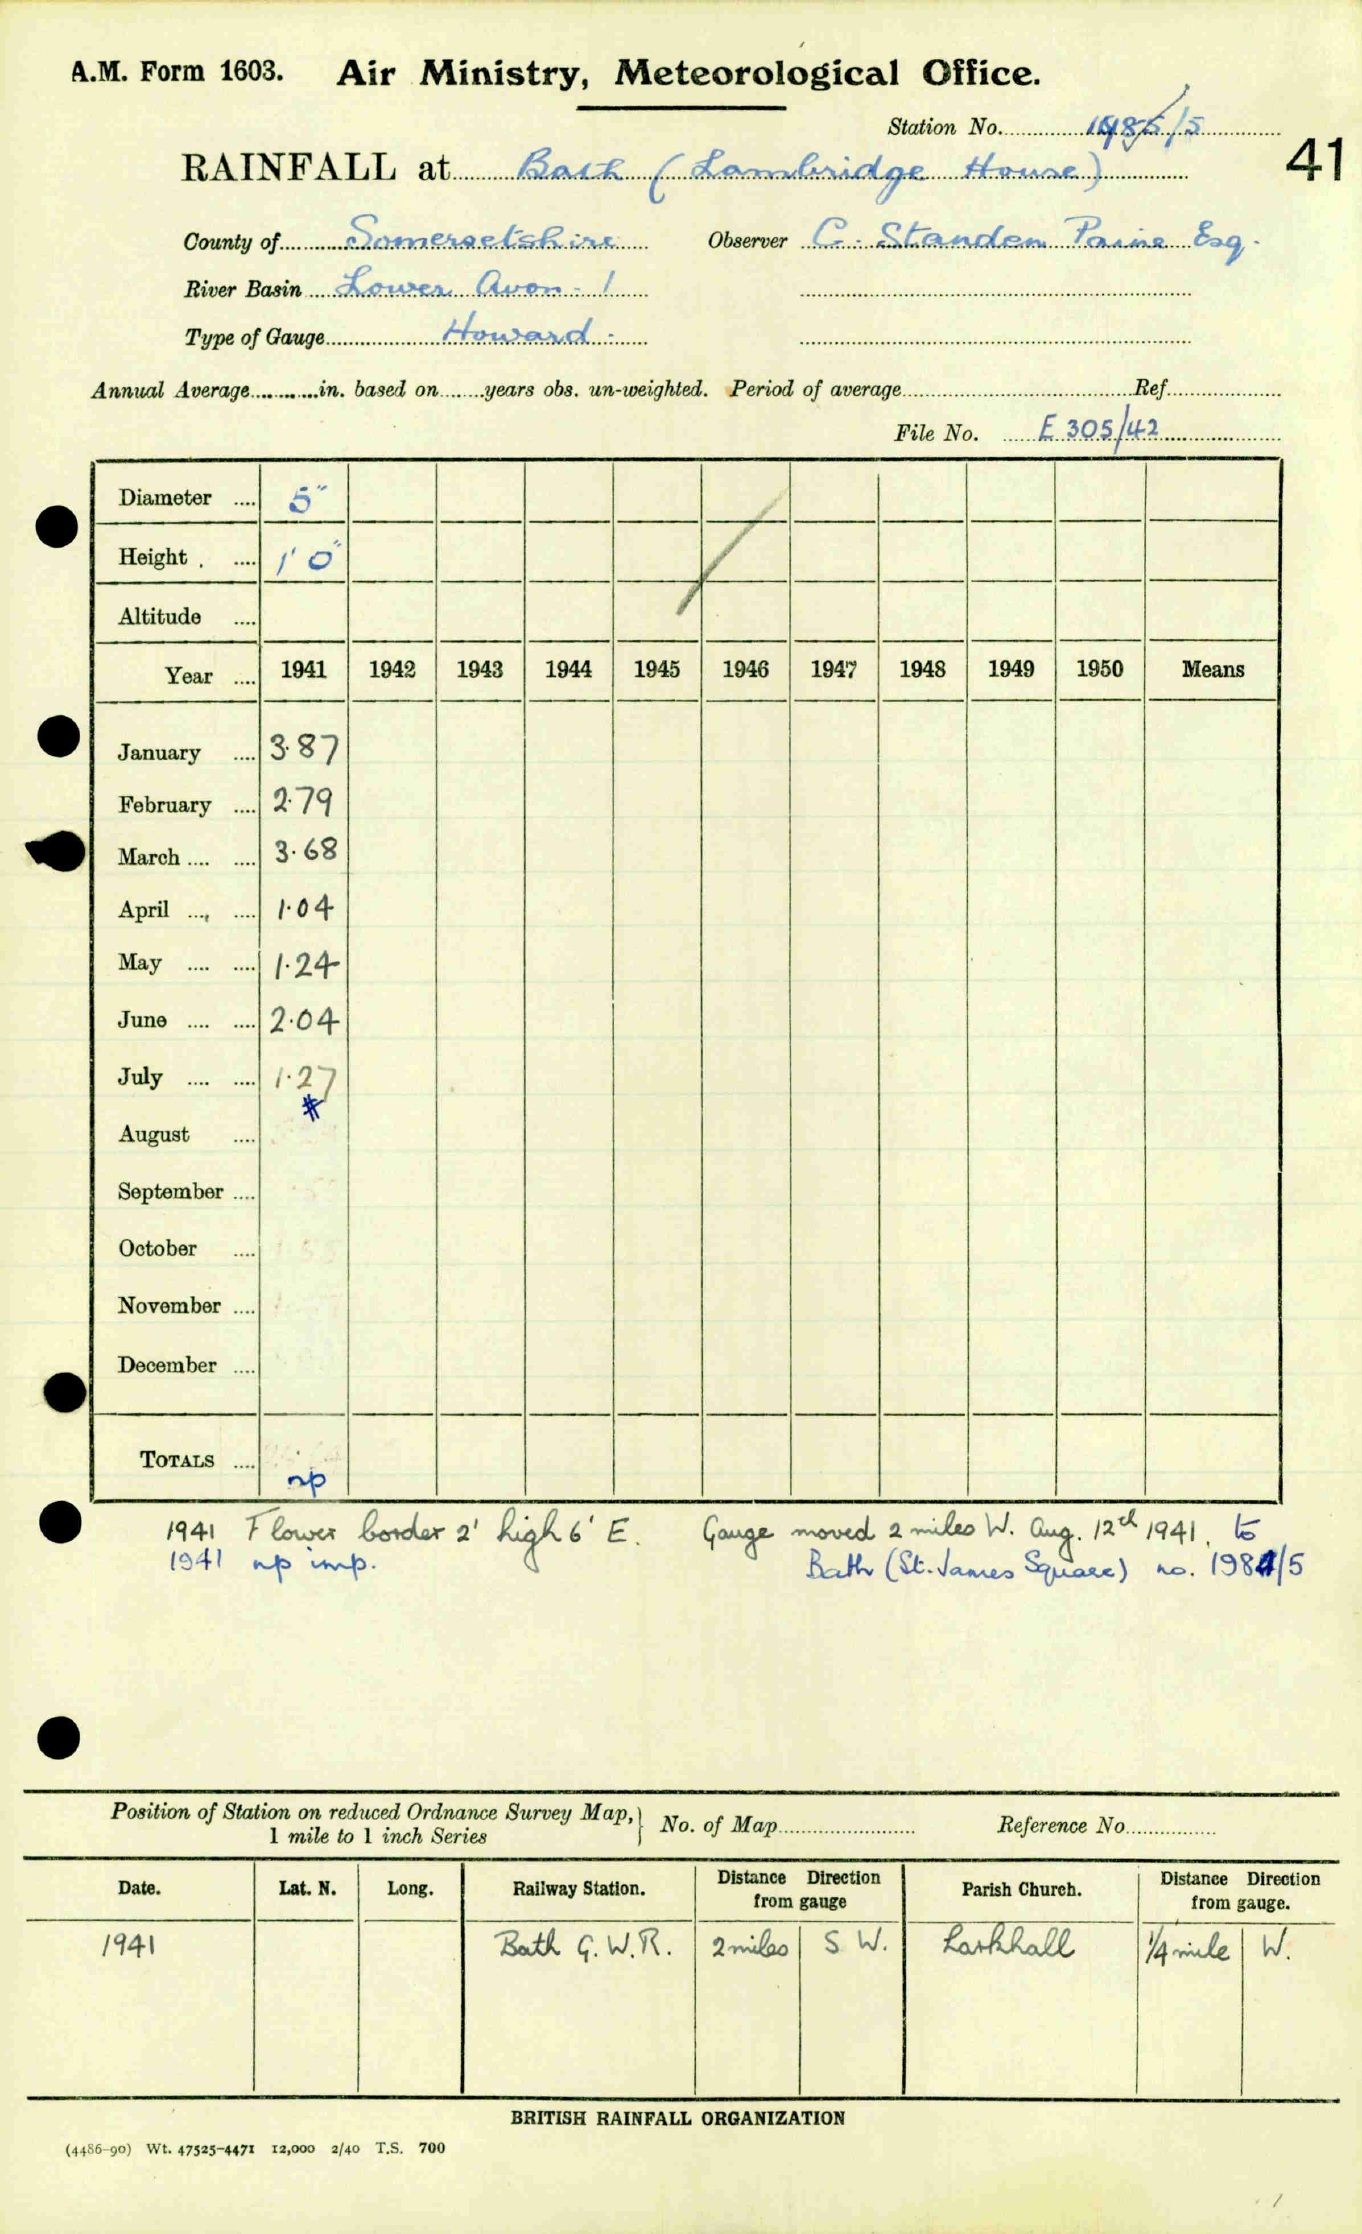 A.M. Form 1603. Air Ministry, Meteorological Office.
Station No. 1985/5
41
RAINFALL at Bath (Lambridge House)
County of Somersetshire Observer C. Standen Paine Esq.
River Basin Lower Avon - 1
Type of Gauge Howard.
Annual Average in. based on years obs. un-weighted. Period of average Ref.
File No. E 305/42
Diameter 5"
Height 1' 0"
Altitude
Year 1941 1942 1943 1944 1945 1946 1947 1948 1949 1950 Means
January 3.87
February 2.79
March 3.68
April 1.04
May 1.24
June 2.04
July 1.27
#
August
September
October
November
December
TOTALS
np
1941 Flower border 2' high 6' E. Gauge moved 2 miles W. Aug. 12th 1941. to
1941 np imp. Bath (St. James Square) no. 1984/5
Position of Station on reduced Ordnance Survey Map, 1 mile to 1 inch Series } No. of Map Reference No.
Date. Lat. N. Long. Railway Station. Distance Direction from gauge Parish Church. Distance Direction from gauge.
1941 Bath G.W.R. 2 miles S W. Larkhall 1/4 mile W.
BRITISH RAINFALL ORGANIZATION
(4486-90) Wt. 47525-4471 12,000 2/40 T.S. 700